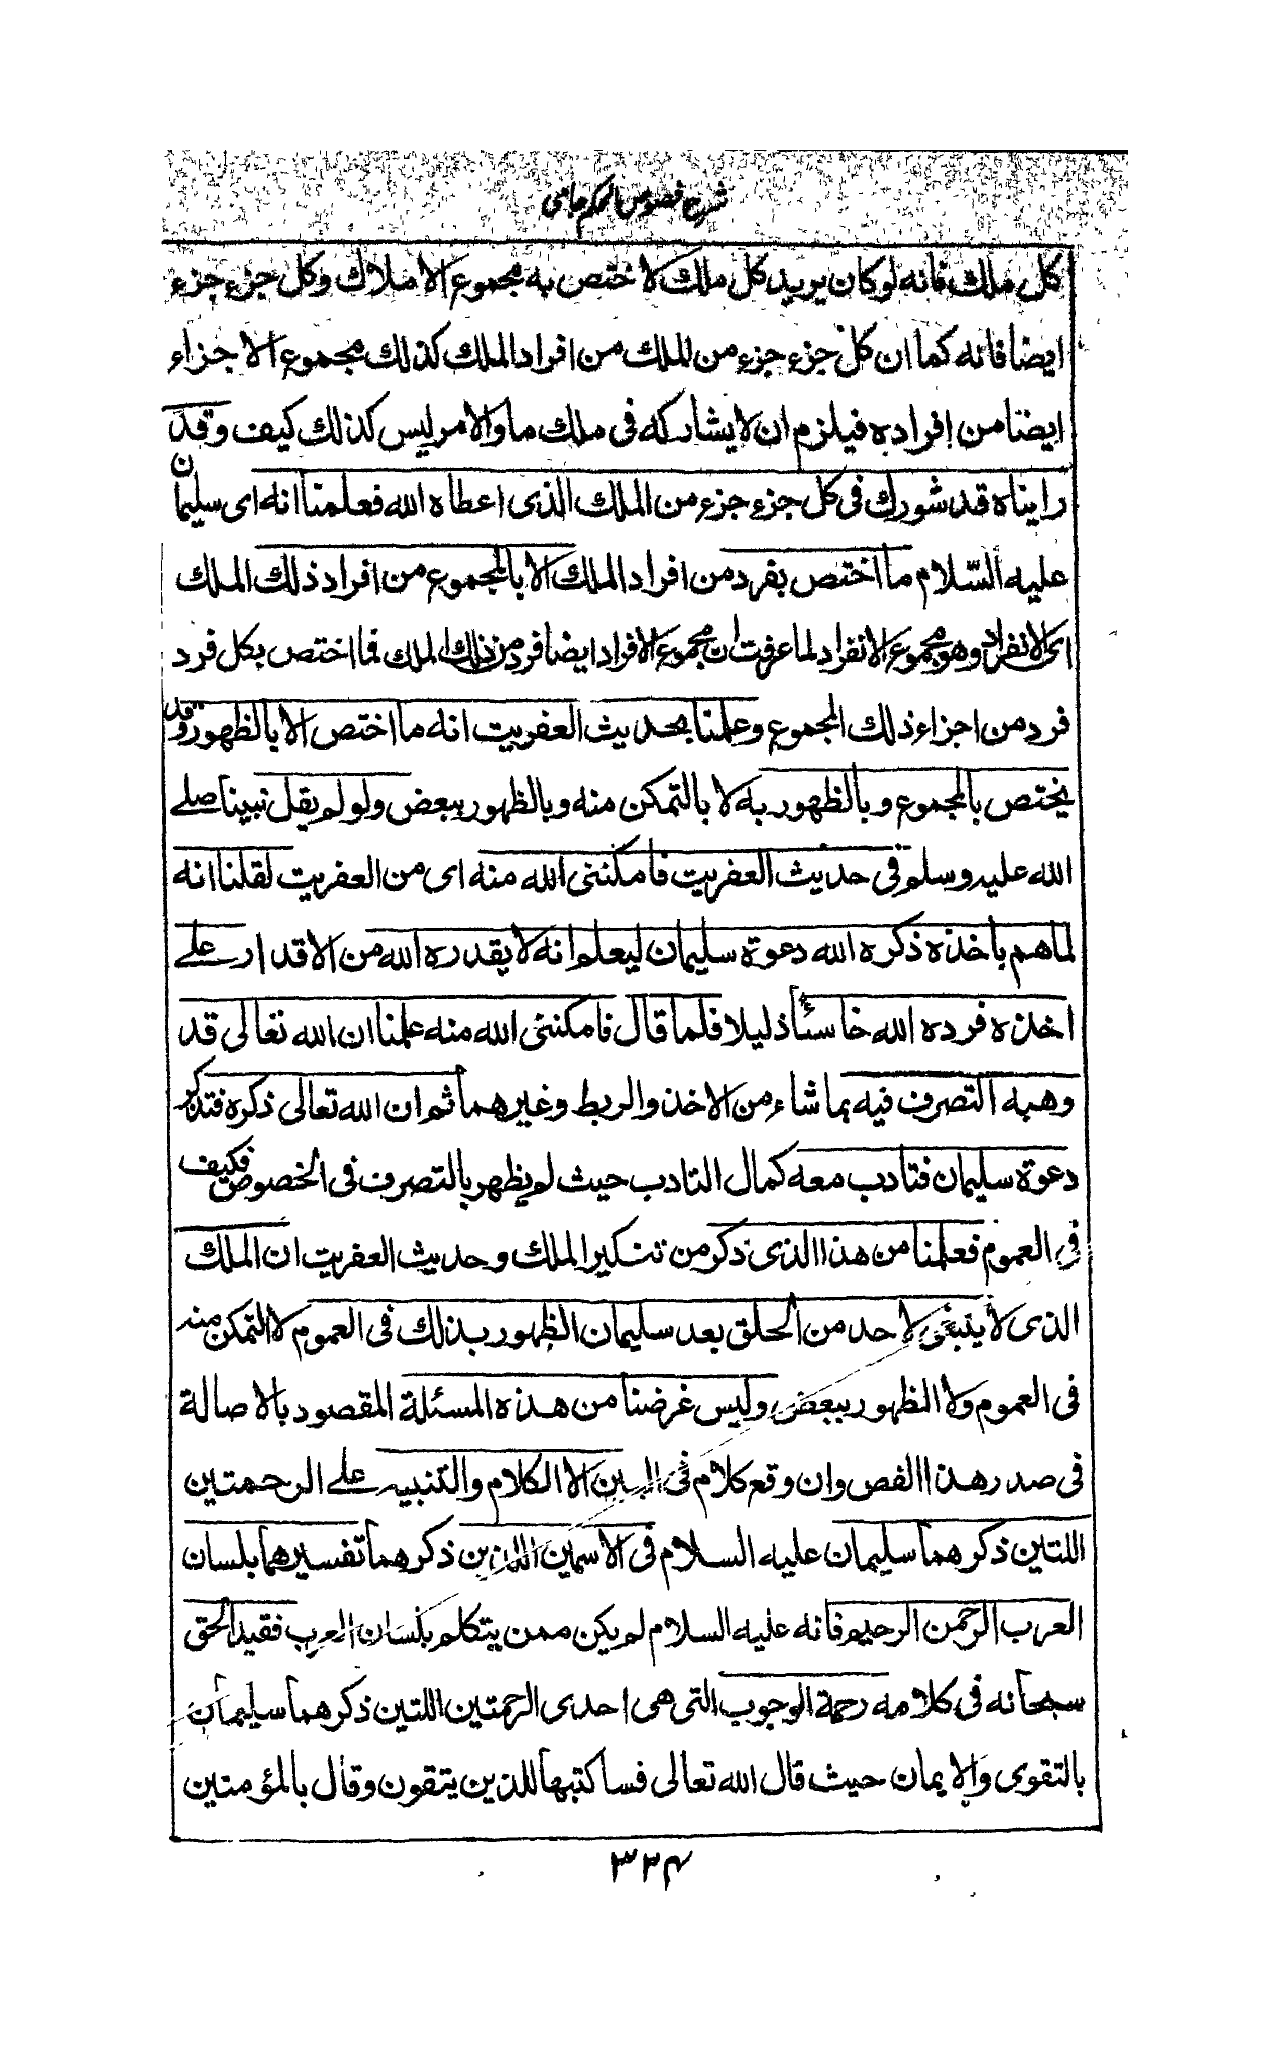 شرح فصوص الحكم جامى
كل ملك فانه لوكان يريد كل ملك لاختص به مجموع الاملاك وكل جزء جزء
ايضا فانه كما ان كل جزء جزء من الملك من افراد الملك كذلك مجموع الاجزاء
ايضا من افراده فيلزم ان لا يشاركه فى ملك ما والامر ليس كذلك كيف وقد
رايناه قد شورك فى كل جزء جزء من الملك الذى اعطاه الله فعلمنا انه اى سليمان
عليه السّلام ما اختص بفرد من افراد الملك الا بالمجموع من افراد ذلك الملك
اى الانفراد وهو مجموع الانفراد لما عرفت ان مجموع الافراد ايضا فرد من ذلك الملك فما اختص بكل فرد
فرد من اجزاء ذلك المجموع وعلمنا بحديث العفريت انه ما اختص الا بالظهور وقد
يختص بالمجموع وبالظهور به لا بالتمكن منه وبالظهور ببعض ولو لم يقل نبينا صلے
الله عليه وسلم فى حديث العفريت فامكننى الله منه اى من العفريت لقلنا انه
لما هم باخذه ذكره الله دعوة سليمان ليعلم انه لا يقدره الله من الاقدار علے
اخذه فرده الله خاسئاً ذليلا فلما قال فامكننى الله منه علمنا ان الله تعالى قد
وهبه التصرف فيه بما شاء من الاخذ والربط وغيرهما ثم ان الله تعالى ذكره فتذكر
دعوة سليمان فتادب معه كمال التادب حيث لم يظهر بالتصرف فى الخصوص فكيف
فى العموم فعلمنا من هذا الذى ذكر من تنكير الملك وحديث العفريت ان الملك
الذى لا ينبغى لاحد من الخلق بعد سليمان الظهور بذلك فى العموم لا التمكن منه
فى العموم ولا الظهور ببعض وليس غرضنا من هذه المسئلة المقصود بالاصالة
فى صدر هذا الفص وان وقع كلام فى البين الا الكلام والتنبيه علے الرحمتين
اللتين ذكرهما سليمان عليه السلام فى الاسمين اللذين ذكرهما تفسيرهما بلسان
العرب الرحمن الرحيم فانه عليه السلام لم يكن ممن يتكلم بلسان العرب فقيد الحق
سبحانه فى كلامه رحمة الوجوب التى هى احدى الرحمتين اللتين ذكرهما سليمان
بالتقوى والايمان حيث قال الله تعالى فساكتبها للذين يتقون وقال بالمؤمنين
۳۲۴